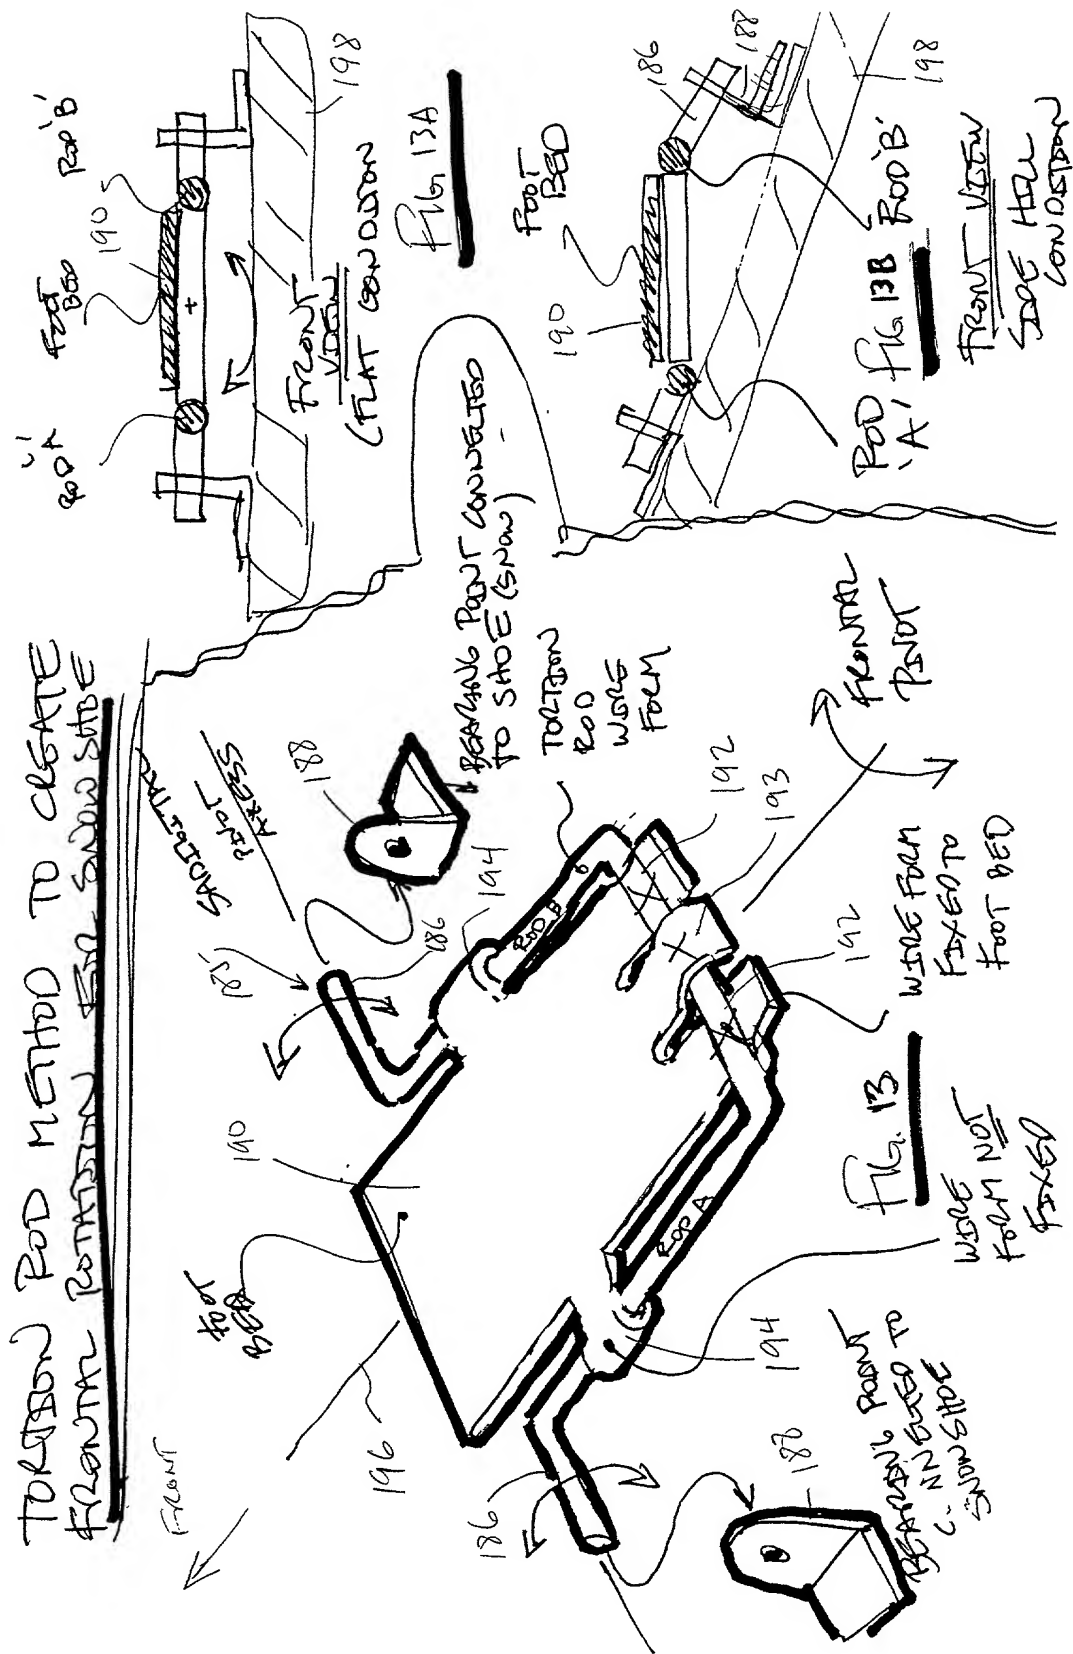 TORTION ROD METHOD TO CREATE
FRONTAL ROTATION FOR SNOW SHOE
FRONT
196
FOOT
BED
190
185
SADIGITTAL
PIVOT
AXESS
186
188
194
ROD B
BEARING POINT CONNECTED
TO SHOE (SNOW)
TORTION
ROD
WIRE
FORM
192
193
FRONTAL
PIVOT
192
WIRE FORM
FIXED TO
FOOT BED
FIG. 13
WIRE
FORM NOT
FIXED
ROD A
194
186
188
BEARING POINT
CONNECTED TO
SNOW SHOE
ROD 'A'
FOOT
BED
190
ROD 'B'
198
FRONT
VIEW
(FLAT CONDITION
FIG. 13A
FOOT
BED
190
186
188
198
ROD
'A'
FIG. 13B
ROD 'B'
FRONT VIEW
SIDE HILL
CONDITION